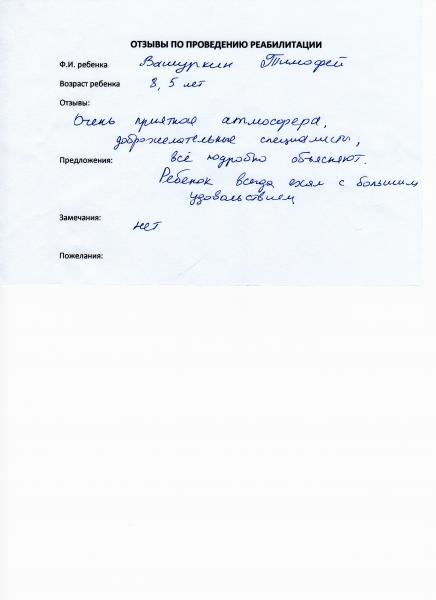 ОТЗЫВЫ ПО ПРОВЕДЕНИЮ РЕАБИЛИТАЦИИ
Ф.И. ребенка Вашуркин Тимофей
Возраст ребенка 8,5 лет
Отзывы:
Очень приятная атмосфера,
доброжелательные специалисты,
Предложения: всё подробно объясняют.
Ребенок всегда ехал с большим
удовольствием
Замечания:
нет
Пожелания: